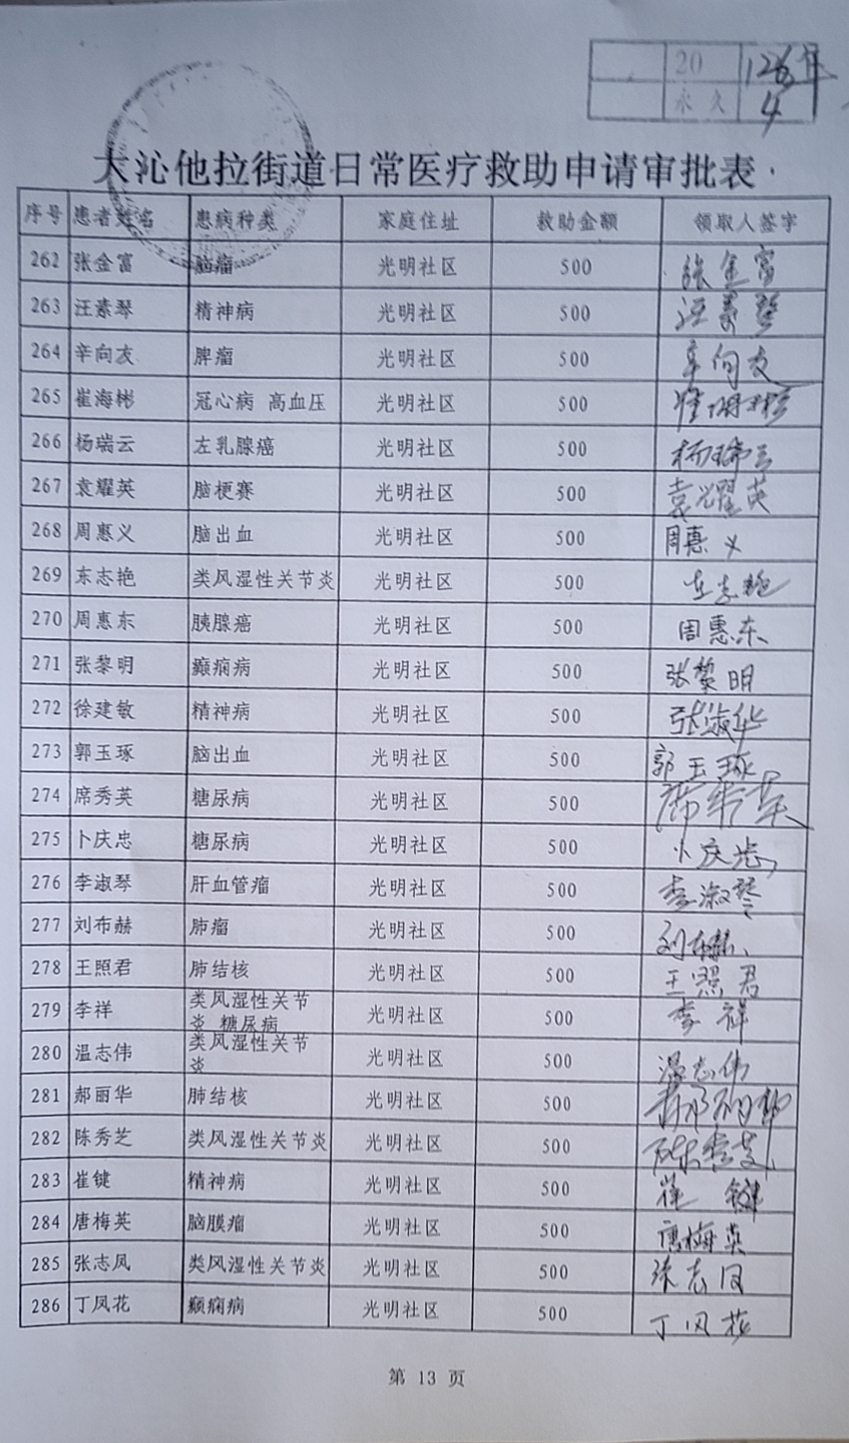 20
年
永久
4
大沁他拉街道日常医疗救助申请审批表
序号 患者姓名 患病种类 家庭住址 救助金额 领取人签字
262 张金富 脑瘤 光明社区 500 张金富
263 汪素琴 精神病 光明社区 500 汪素琴
264 辛向友 脾瘤 光明社区 500 辛向友
265 崔海彬 冠心病 高血压 光明社区 500
266 杨瑞云 左乳腺癌 光明社区 500 杨瑞云
267 袁耀英 脑梗赛 光明社区 500 袁耀英
268 周惠义 脑出血 光明社区 500 周惠义
269 东志艳 类风湿性关节炎 光明社区 500 东志艳
270 周惠东 胰腺癌 光明社区 500 周惠东
271 张黎明 癫痫病 光明社区 500 张黎明
272 徐建敏 精神病 光明社区 500 张淑华
273 郭玉琢 脑出血 光明社区 500 郭玉琢
274 席秀英 糖尿病 光明社区 500 席秀英
275 卜庆忠 糖尿病 光明社区 500 卜庆忠
276 李淑琴 肝血管瘤 光明社区 500 李淑琴
277 刘布赫 肺瘤 光明社区 500 刘布赫
278 王照君 肺结核 光明社区 500 王照君
279 李祥 类风湿性关节炎 糖尿病 光明社区 500 李祥
280 温志伟 类风湿性关节炎 光明社区 500 温志伟
281 郝丽华 肺结核 光明社区 500
282 陈秀芝 类风湿性关节炎 光明社区 500 陈秀芝
283 崔键 精神病 光明社区 500 崔键
284 唐梅英 脑膜瘤 光明社区 500 唐梅英
285 张志凤 类风湿性关节炎 光明社区 500 张志凤
286 丁凤花 癫痫病 光明社区 500 丁凤花
第 13 页